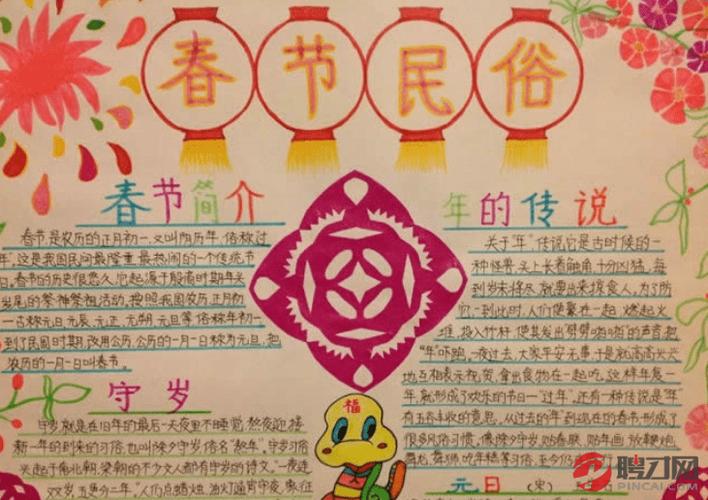 春节民俗
春节简介
春节,是农历的正月初一,又叫阴历年,俗称过
年,这是我国民间最隆重、最热闹的一个传统节
日。春节的历史很悠久,它起源于殷商时期年头
岁尾的祭神祭祖活动。按照我国农历,正月初
一古称元日、元辰、元正、元朔、元旦等,俗称年初一,
到了民国时期,改用公历,公历的一月一日称为元旦,把
农历的一月一日叫春节。
守岁
守岁,就是在旧年的最后一天夜里不睡觉,熬夜迎接
新一年的到来的习俗,也叫除夕守岁,俗名"熬年"。守岁习俗
兴起于南北朝,梁朝的不少文人都有守岁的诗文。"一夜连
双岁,五更分二年。"人们点蜡烛、油灯通宵守夜,象征
年的传说
关于"年"传说它是古时候的
一种怪兽,头上长着触角,十分凶猛,每
到岁末将尽,就要出来掠食人,为了防
它一到此时,人们便聚在一起,燃起火
堆,投入竹杆,使其发出劈劈啪啪的声音,把
"年"吓跑,一夜过去,大家平安无事,于是就高高兴兴
地互相表示祝贺,拿出食物在一起吃,这样年复一
年,就形成了欢乐的节日——"过年"。还有一种传说是"年"
有五谷丰收的意思。从过去的"年"到现在的春节,形成了
很多风俗习惯,像除夕守岁、贴春联、贴年画、放鞭炮、
舞龙、舞狮、吃年糕等习俗,至今仍
元日
(宋)
福
聘才网
PINCAI.COM